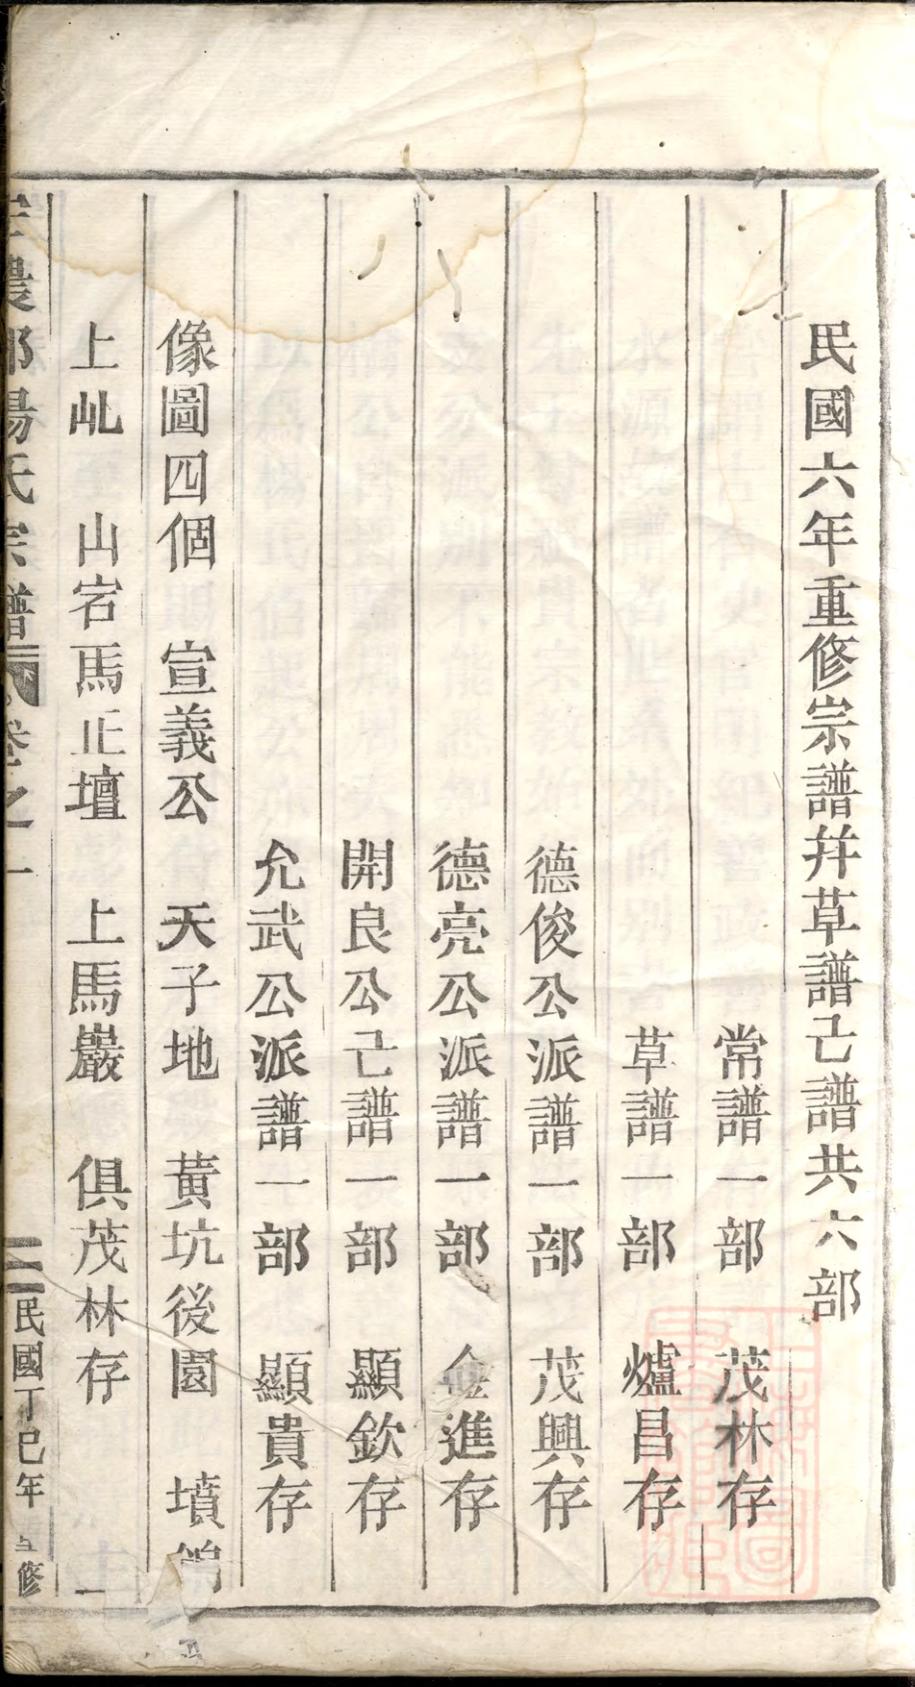 民國六年重修宗譜幷草譜亡譜共六部
常譜一部 茂林存
草譜一部 爐昌存
德俊公派譜一部 茂興存
德亮公派譜一部 金進存
開良公亡譜一部 顯欽存
允武公派譜一部 顯貴存
像圖四個 宣義公 天子地 黃坑後園 墳
上屾 山宕馬正壇 上馬巖 俱茂林存 一
農郡楊氏宗譜 卷之一 民國丁巳年 修